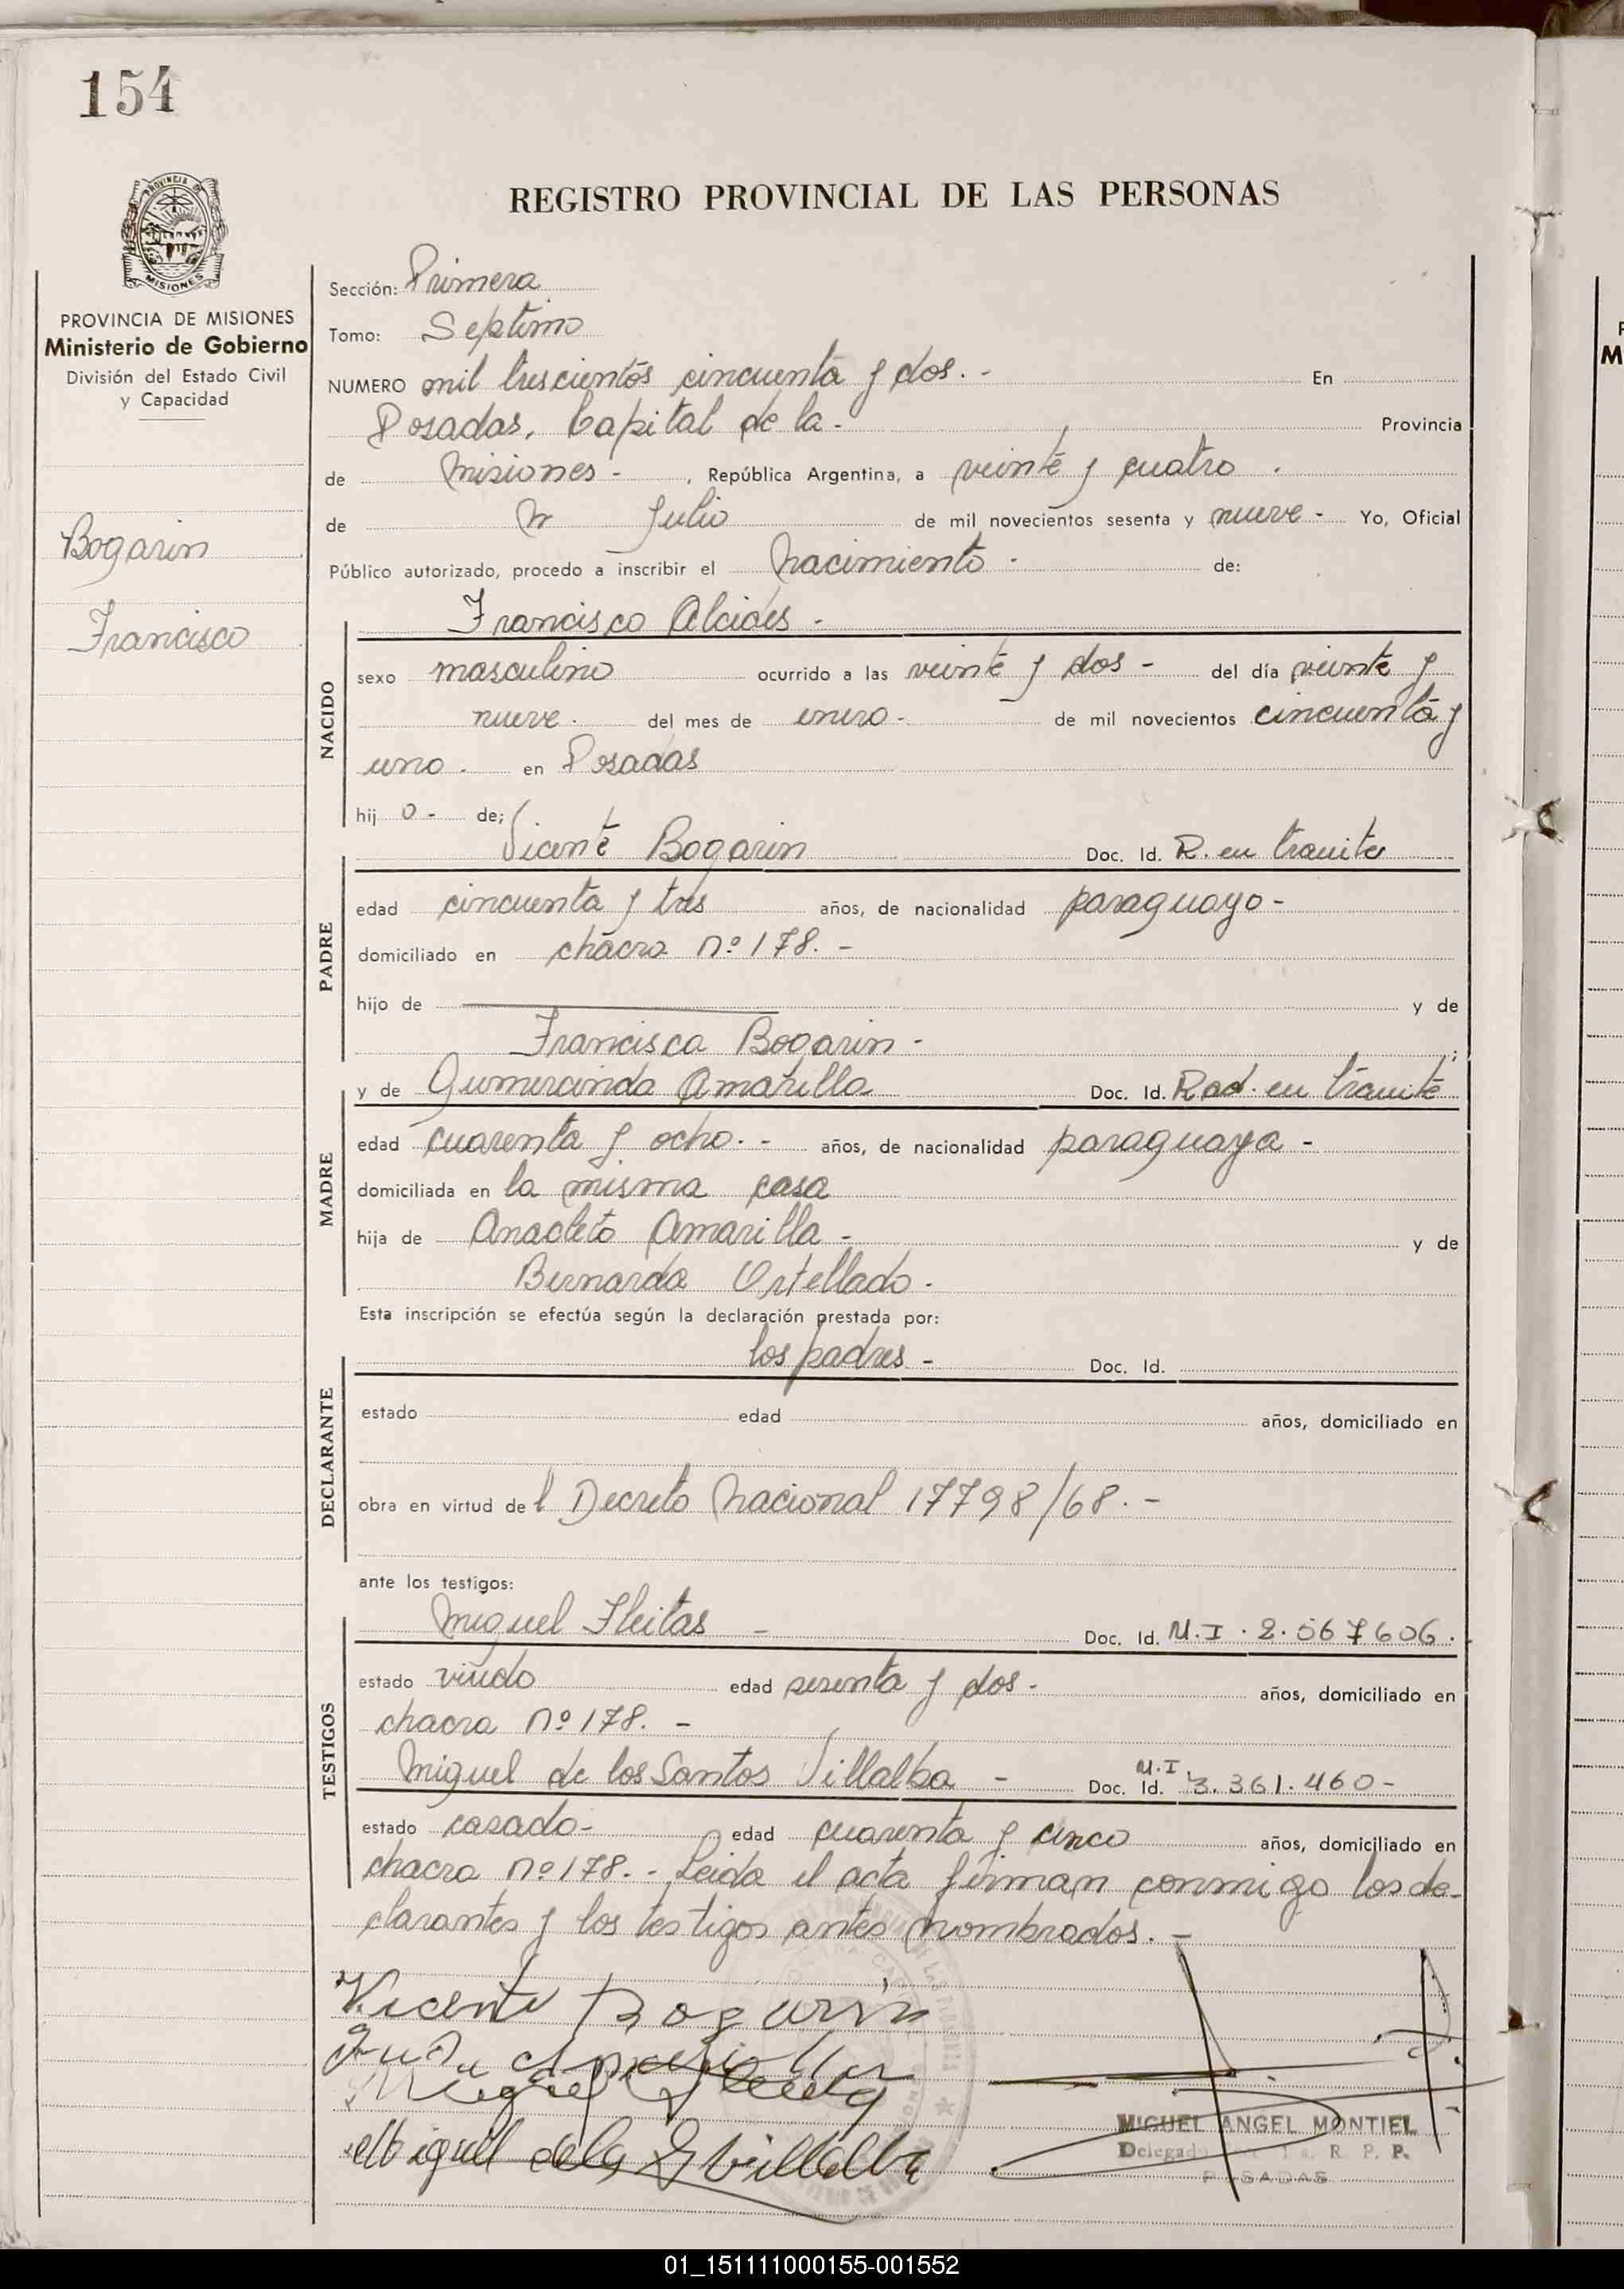 154
PROVINCIA DE MISIONES
REGISTRO PROVINCIAL DE LAS PERSONAS
PROVINCIA DE MISIONES
Ministerio de Gobierno
División del Estado Civil
y Capacidad
Bogarin
Francisco
Sección: Primera
Tomo: Septimo
NUMERO mil trescientos cincuenta y dos. - En
Posadas, Capital de la - Provincia
de Misiones - , República Argentina, a veinte y cuatro .
de Julio de mil novecientos sesenta y nueve - Yo, Oficial
Público autorizado, procedo a inscribir el nacimiento - de:
Francisco Alcides -
NACIDO
sexo masculino ocurrido a las veinte y dos - del día veinte y
nueve . del mes de enero - de mil novecientos cincuenta y
uno . en Posadas
hij o - de;
Vicente Bogarin Doc. Id. R. en tramite
PADRE
edad cincuenta y tres años, de nacionalidad paraguayo -
domiciliado en chacra nº 178. -
hijo de y de
Francisca Bogarin - ;
y de Gumercinda Amarilla Doc. Id. Rad. en tramite
MADRE
edad cuarenta y ocho. - años, de nacionalidad paraguaya -
domiciliada en la misma casa
hija de Anacleto Amarilla - y de
Bernarda Ortellado -
Esta inscripción se efectúa según la declaración prestada por:
los padres - Doc. Id.
DECLARANTE
estado edad años, domiciliado en
obra en virtud de l Decreto Nacional 17798/68. -
ante los testigos:
Miguel Fleitas - Doc. Id. M.I. 2.067606.
TESTIGOS
estado viudo edad sesenta y dos - años, domiciliado en
chacra nº 178. -
Miguel de los Santos Villalba - Doc. Id. M.I. 3.361.460 -
estado casado - edad cuarenta y cinco años, domiciliado en
chacra nº 178. - Leida el acta firman conmigo los de-
clarantes y los testigos antes nombrados. -
Vicente Bogarin
Miguel de los S Villalba
MIGUEL ANGEL MONTIEL
R. P. P.
POSADAS
01_151111000155-001552